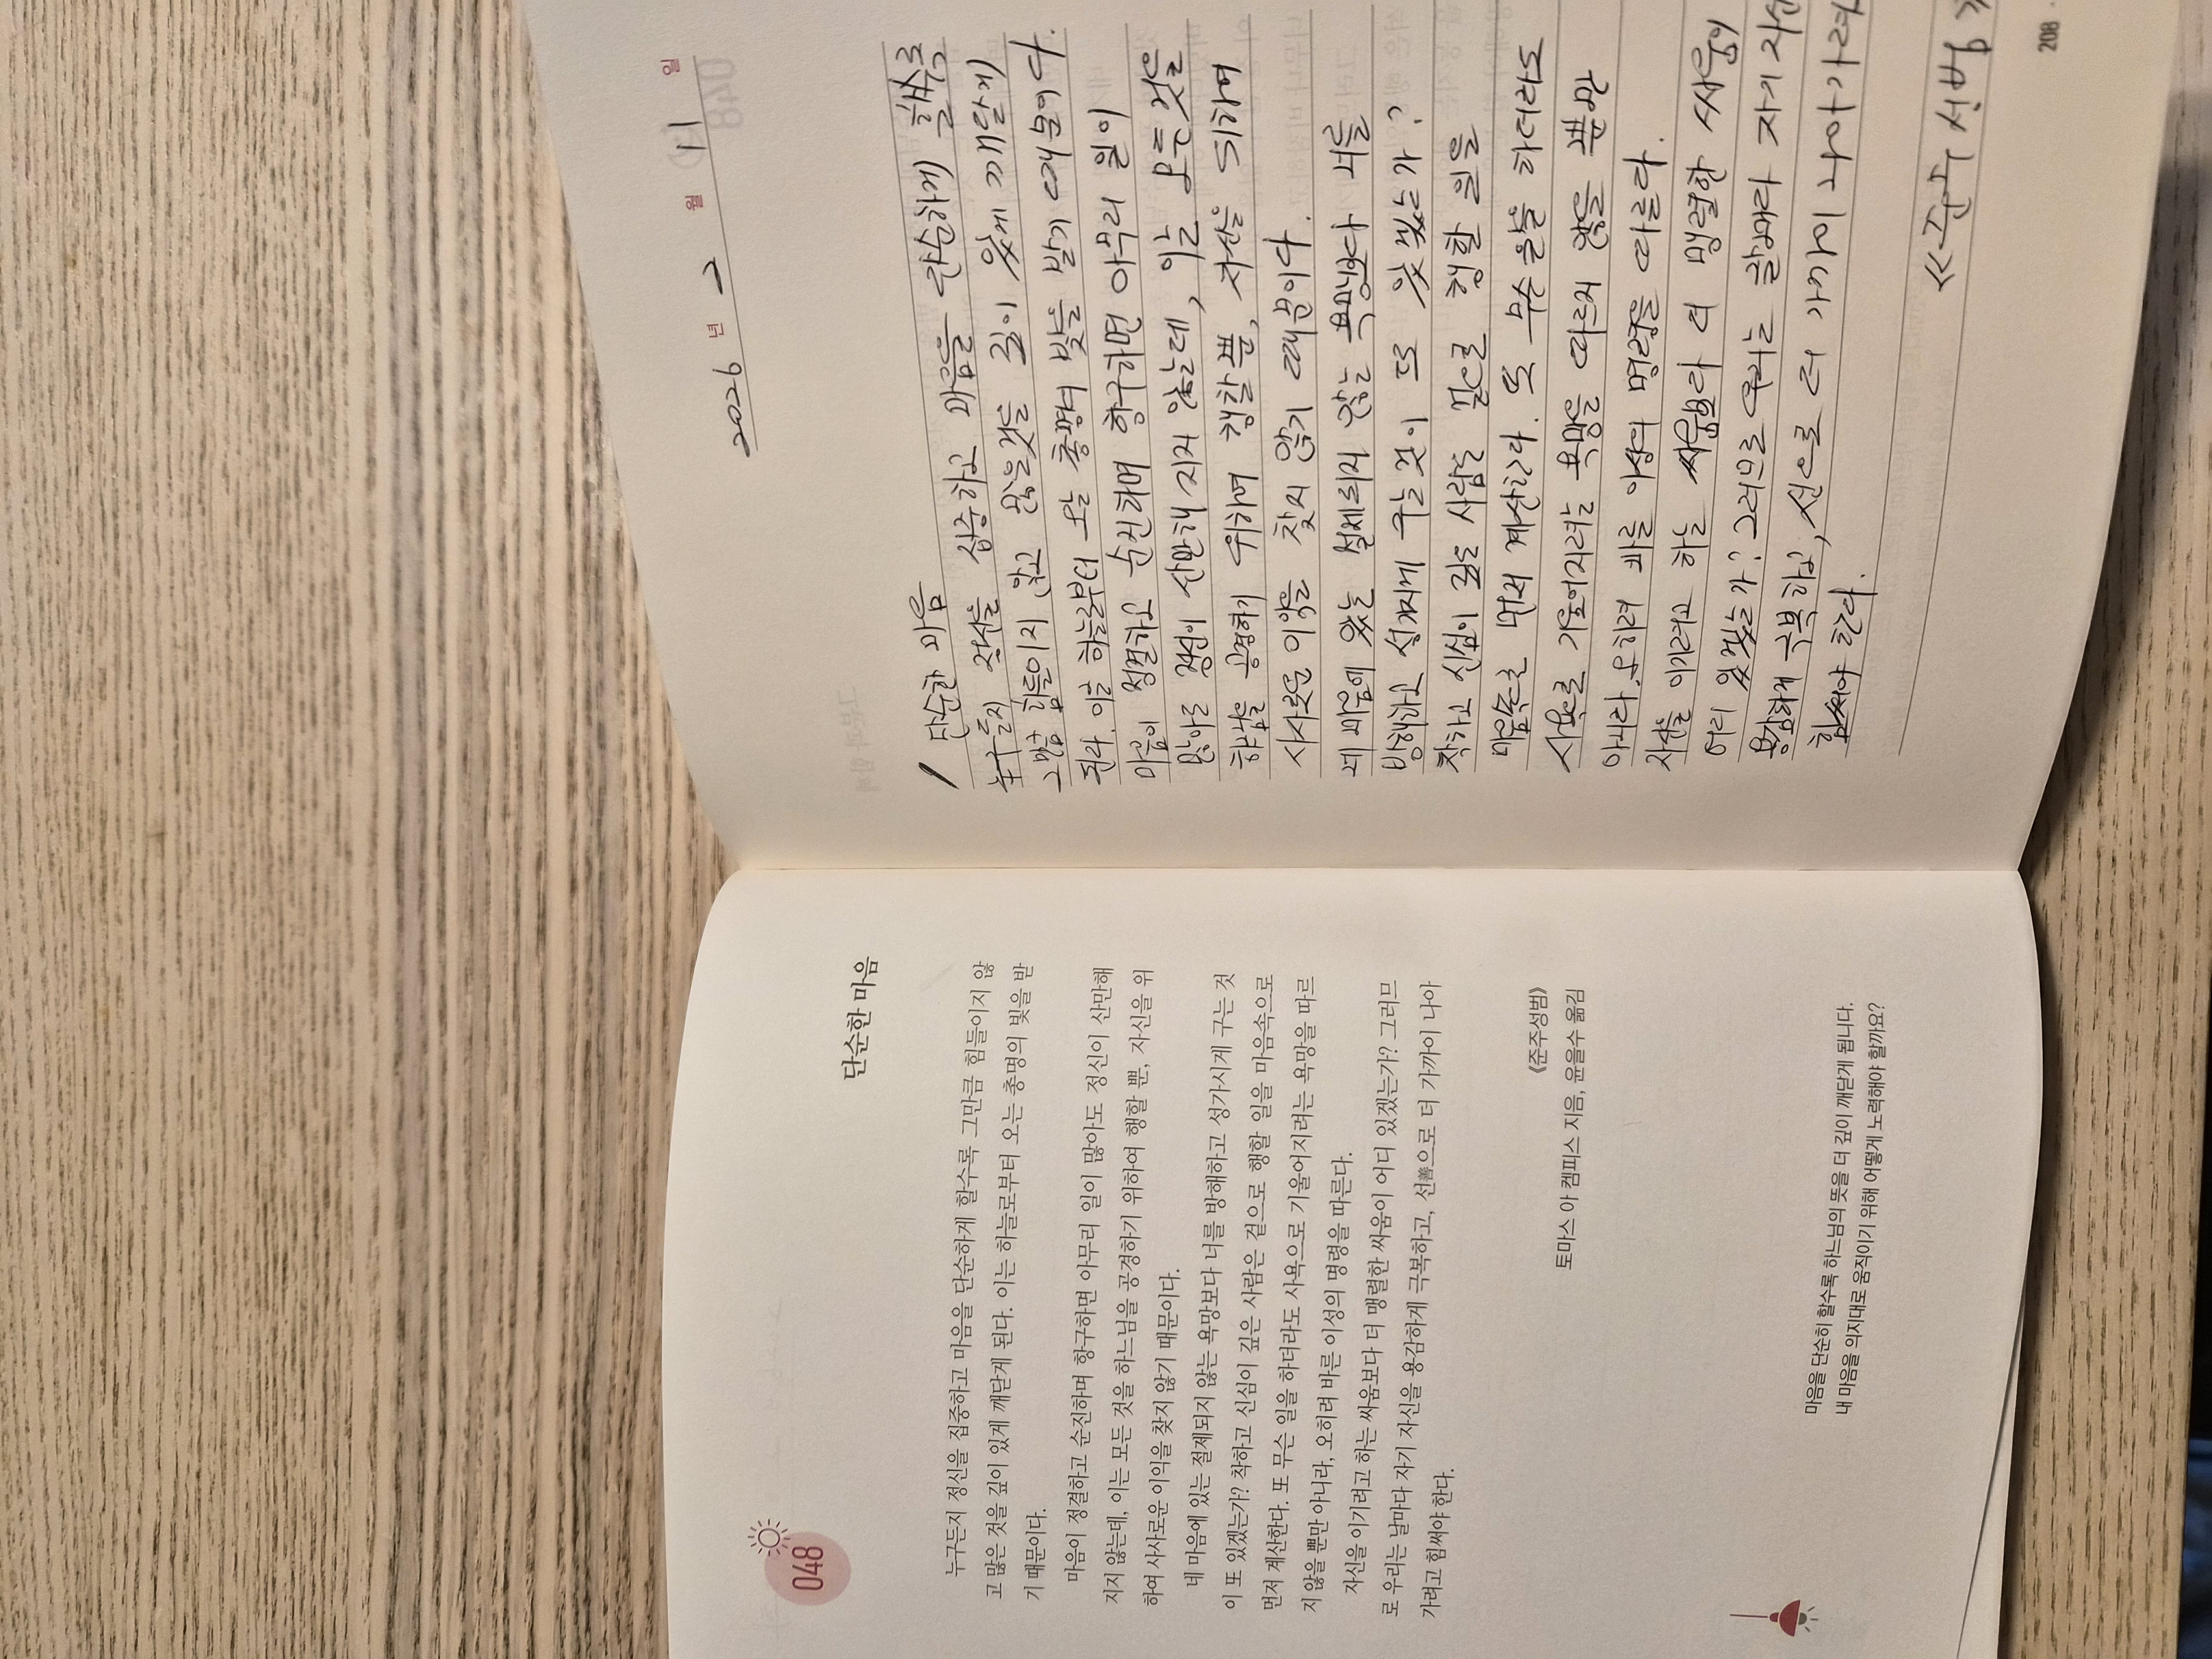 048
단순한 마음
누구든지 정신을 집중하고 마음을 단순하게 할수록 그만큼 힘들이지 않
고 많은 것을 깊이 있게 깨닫게 된다. 이는 하늘로부터 오는 총명의 빛을 받
기 때문이다.
마음이 정결하고 순진하며 항구하면 아무리 일이 많아도 정신이 산만해
지지 않는데, 이는 모든 것을 하느님을 공경하기 위하여 행할 뿐, 자신을 위
하여 사사로운 이익을 찾지 않기 때문이다.
네 마음에 있는 절제되지 않는 욕망보다 너를 방해하고 성가시게 구는 것
이 또 있겠는가? 착하고 신심이 깊은 사람은 겉으로 행할 일을 마음속으로
먼저 계산한다. 또 무슨 일을 하더라도 사욕으로 기울어지려는 욕망을 따르
지 않을 뿐만 아니라, 오히려 바른 이성의 명령을 따른다.
자신을 이기려고 하는 싸움보다 더 맹렬한 싸움이 어디 있겠는가? 그러므
로 우리는 날마다 자기 자신을 용감하게 극복하고, 선善으로 더 가까이 나아
가려고 힘써야 한다.
《준주성범》
토마스 아 켐피스 지음, 윤을수 옮김
마음을 단순히 할수록 하느님의 뜻을 더 깊이 깨닫게 됩니다.
내 마음을 의지대로 움직이기 위해 어떻게 노력해야 할까요?
2026 년 2 월 11 일
단순한 마음
누구든지 정신을 집중하고 마음을 단순하게 할수록
그만큼 힘들이지 않고 많은것을 깊이 있게 깨닫게
된다. 이는 하늘로부터 오는 총명의 빛을 받기 때문이다.
마음이 정결하고 순진하며 항구하면 아무리 일이
많아도 정신이 산만해 지지 않는데, 이는 모든 것을
하느님을 공경하기 위하여 행할뿐, 자신을 위하여
사사로운 이익을 찾지 않기 때문이다.
네 마음에 있는 절제되지 않는 욕망보다 너를
방해하고 성가시게 구는 것이 또 있겠는가?
착하고 신심이 깊은 사람은 겉으로 행할 일을
마음속으로 먼저 계산한다. 또 무슨 일을 하더라도
사욕으로 기울어지려는 욕망을 따르지 않을 뿐만
아니라, 오히려 바른 이성의 명령을 따른다.
자신을 이기려고 하는 싸움보다 더 맹렬한 싸움이
어디 있겠는가? 그러므로 우리는 날마다 자기 자신
용감하게 극복하고, 선으로 더 가까이 나아가려
힘써야 한다.
《준주성범》
208